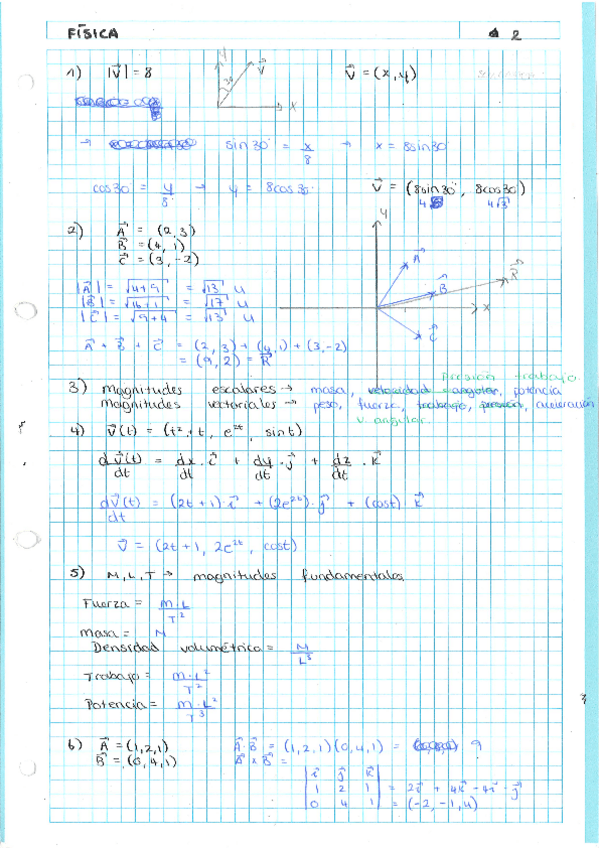 FÍSICA 2
1) |v⃗| = 8 y v⃗ 30 x v⃗ = (x, y)
→ sin30° = x/8 → x = 8sin30°
cos30° = y/8 → y = 8cos30° v⃗ = (8sin30°, 8cos30°)
4 4√3
2) A⃗ = (2,3)
B⃗ = (4,1)
C⃗ = (3,-2)
y A⃗ B⃗ R⃗ x C⃗
|A⃗| = √4+9 = √13 u
|B⃗| = √16+1 = √17 u
|C⃗| = √9+4 = √13 u
A⃗ + B⃗ + C⃗ = (2,3) + (4,1) + (3,-2)
= (9,2) = R⃗
Presión trabajo
3) Magnitudes escalares → masa, velocidad angular, potencia
Magnitudes vectoriales → peso, fuerza, trabajo, presión, aceleración
v. angular.
4) v⃗(t) = (t²+t, e²ᵗ, sint)
dv⃗(t)/dt = dx/dt · i⃗ + dy/dt · j⃗ + dz/dt · k⃗
dv⃗(t)/dt = (2t+1)·i⃗ + (2e²ᵗ)·j⃗ + (cost) k⃗
v⃗ = (2t+1, 2e²ᵗ, cost)
5) M, L, T → magnitudes fundamentales
Fuerza = M·L/T²
Masa = M
Densidad volumétrica = M/L³
Trabajo = M·L²/T²
Potencia = M·L²/T³
6) A⃗ = (1,2,1) A⃗·B⃗ = (1,2,1)(0,4,1) = 9
B⃗ = (0,4,1) A⃗×B⃗ =
i⃗ j⃗ k⃗
1 2 1 = 2i⃗ + 4k⃗ - 4i⃗ - j⃗
0 4 1 = (-2,-1,4)